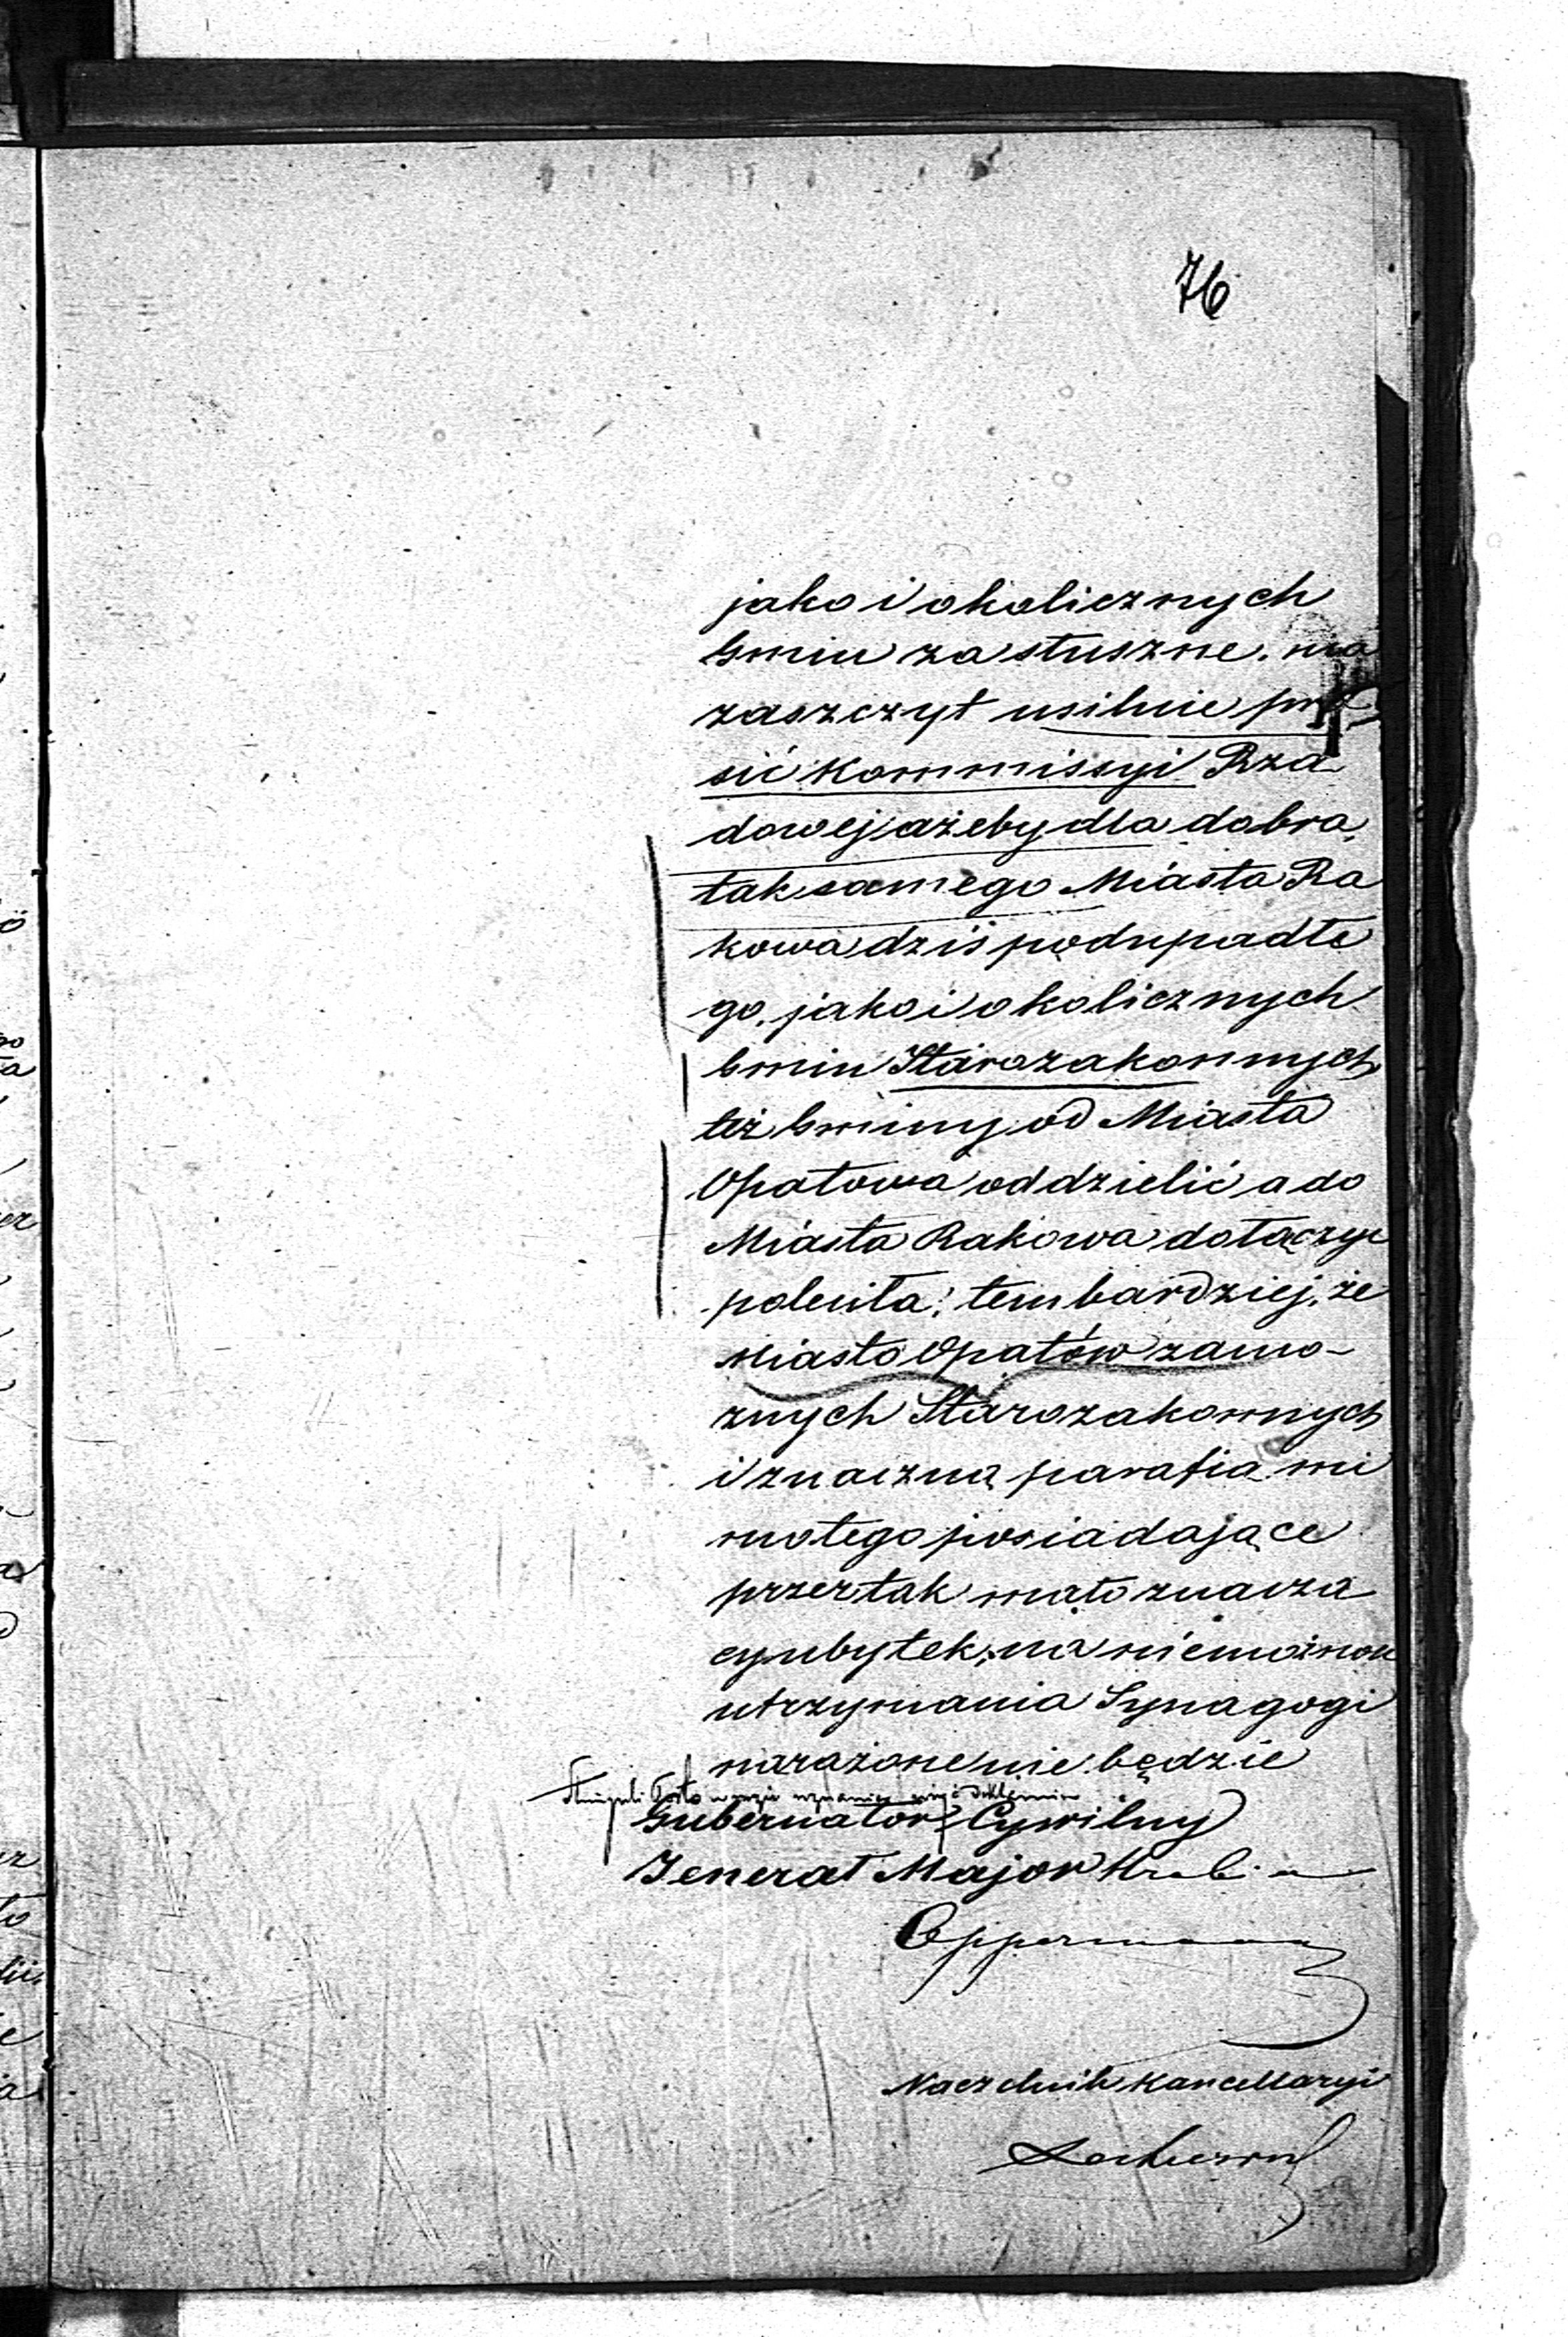 76
jako i okolicznych
Gmin za słuszne, ma
zaszczyt usilnie pro
sić Kommissyi Rzą
dowej, ażeby dla dobra,
tak samego Miasta Ra
kowa dziś podupadłe
go, jako i okolicznych
Gmin Starozakonnych
też Gminy od Miasta
Opatowa oddzielić a do
Miasta Rakowa dołączyć
poleciła; tembardziej, że
Miasto Opatów zamo-
żnych Starozakonnych
i znaczną parafią mi
mo tego posiadające
przez tak mało znaczą
cy ubytek, na niemożność
utrzymania Synagogi
narażone nie będzie
Gubernator Cywilny
Jenerał Major Hrabia
Opperman
Naczelnik Kancellaryi